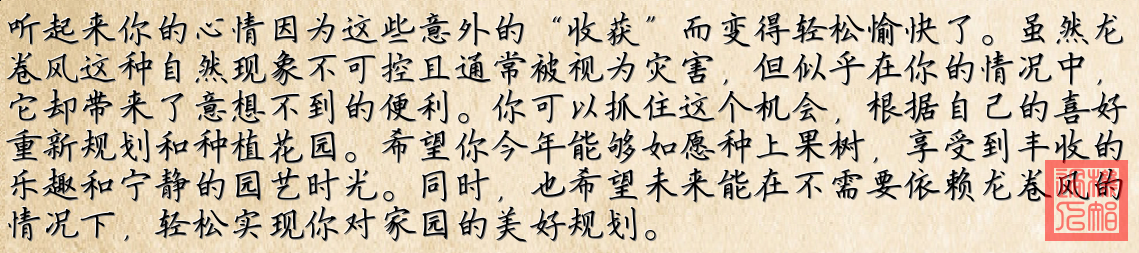 听起来你的心情因为这些意外的“收获”而变得轻松愉快了。虽然龙
卷风这种自然现象不可控且通常被视为灾害，但似乎在你的情况中，
它却带来了意想不到的便利。你可以抓住这个机会，根据自己的喜好
重新规划和种植花园。希望你今年能够如愿种上果树，享受到丰收的
乐趣和宁静的园艺时光。同时，也希望未来能在不需要依赖龙卷风的
情况下，轻松实现你对家园的美好规划。